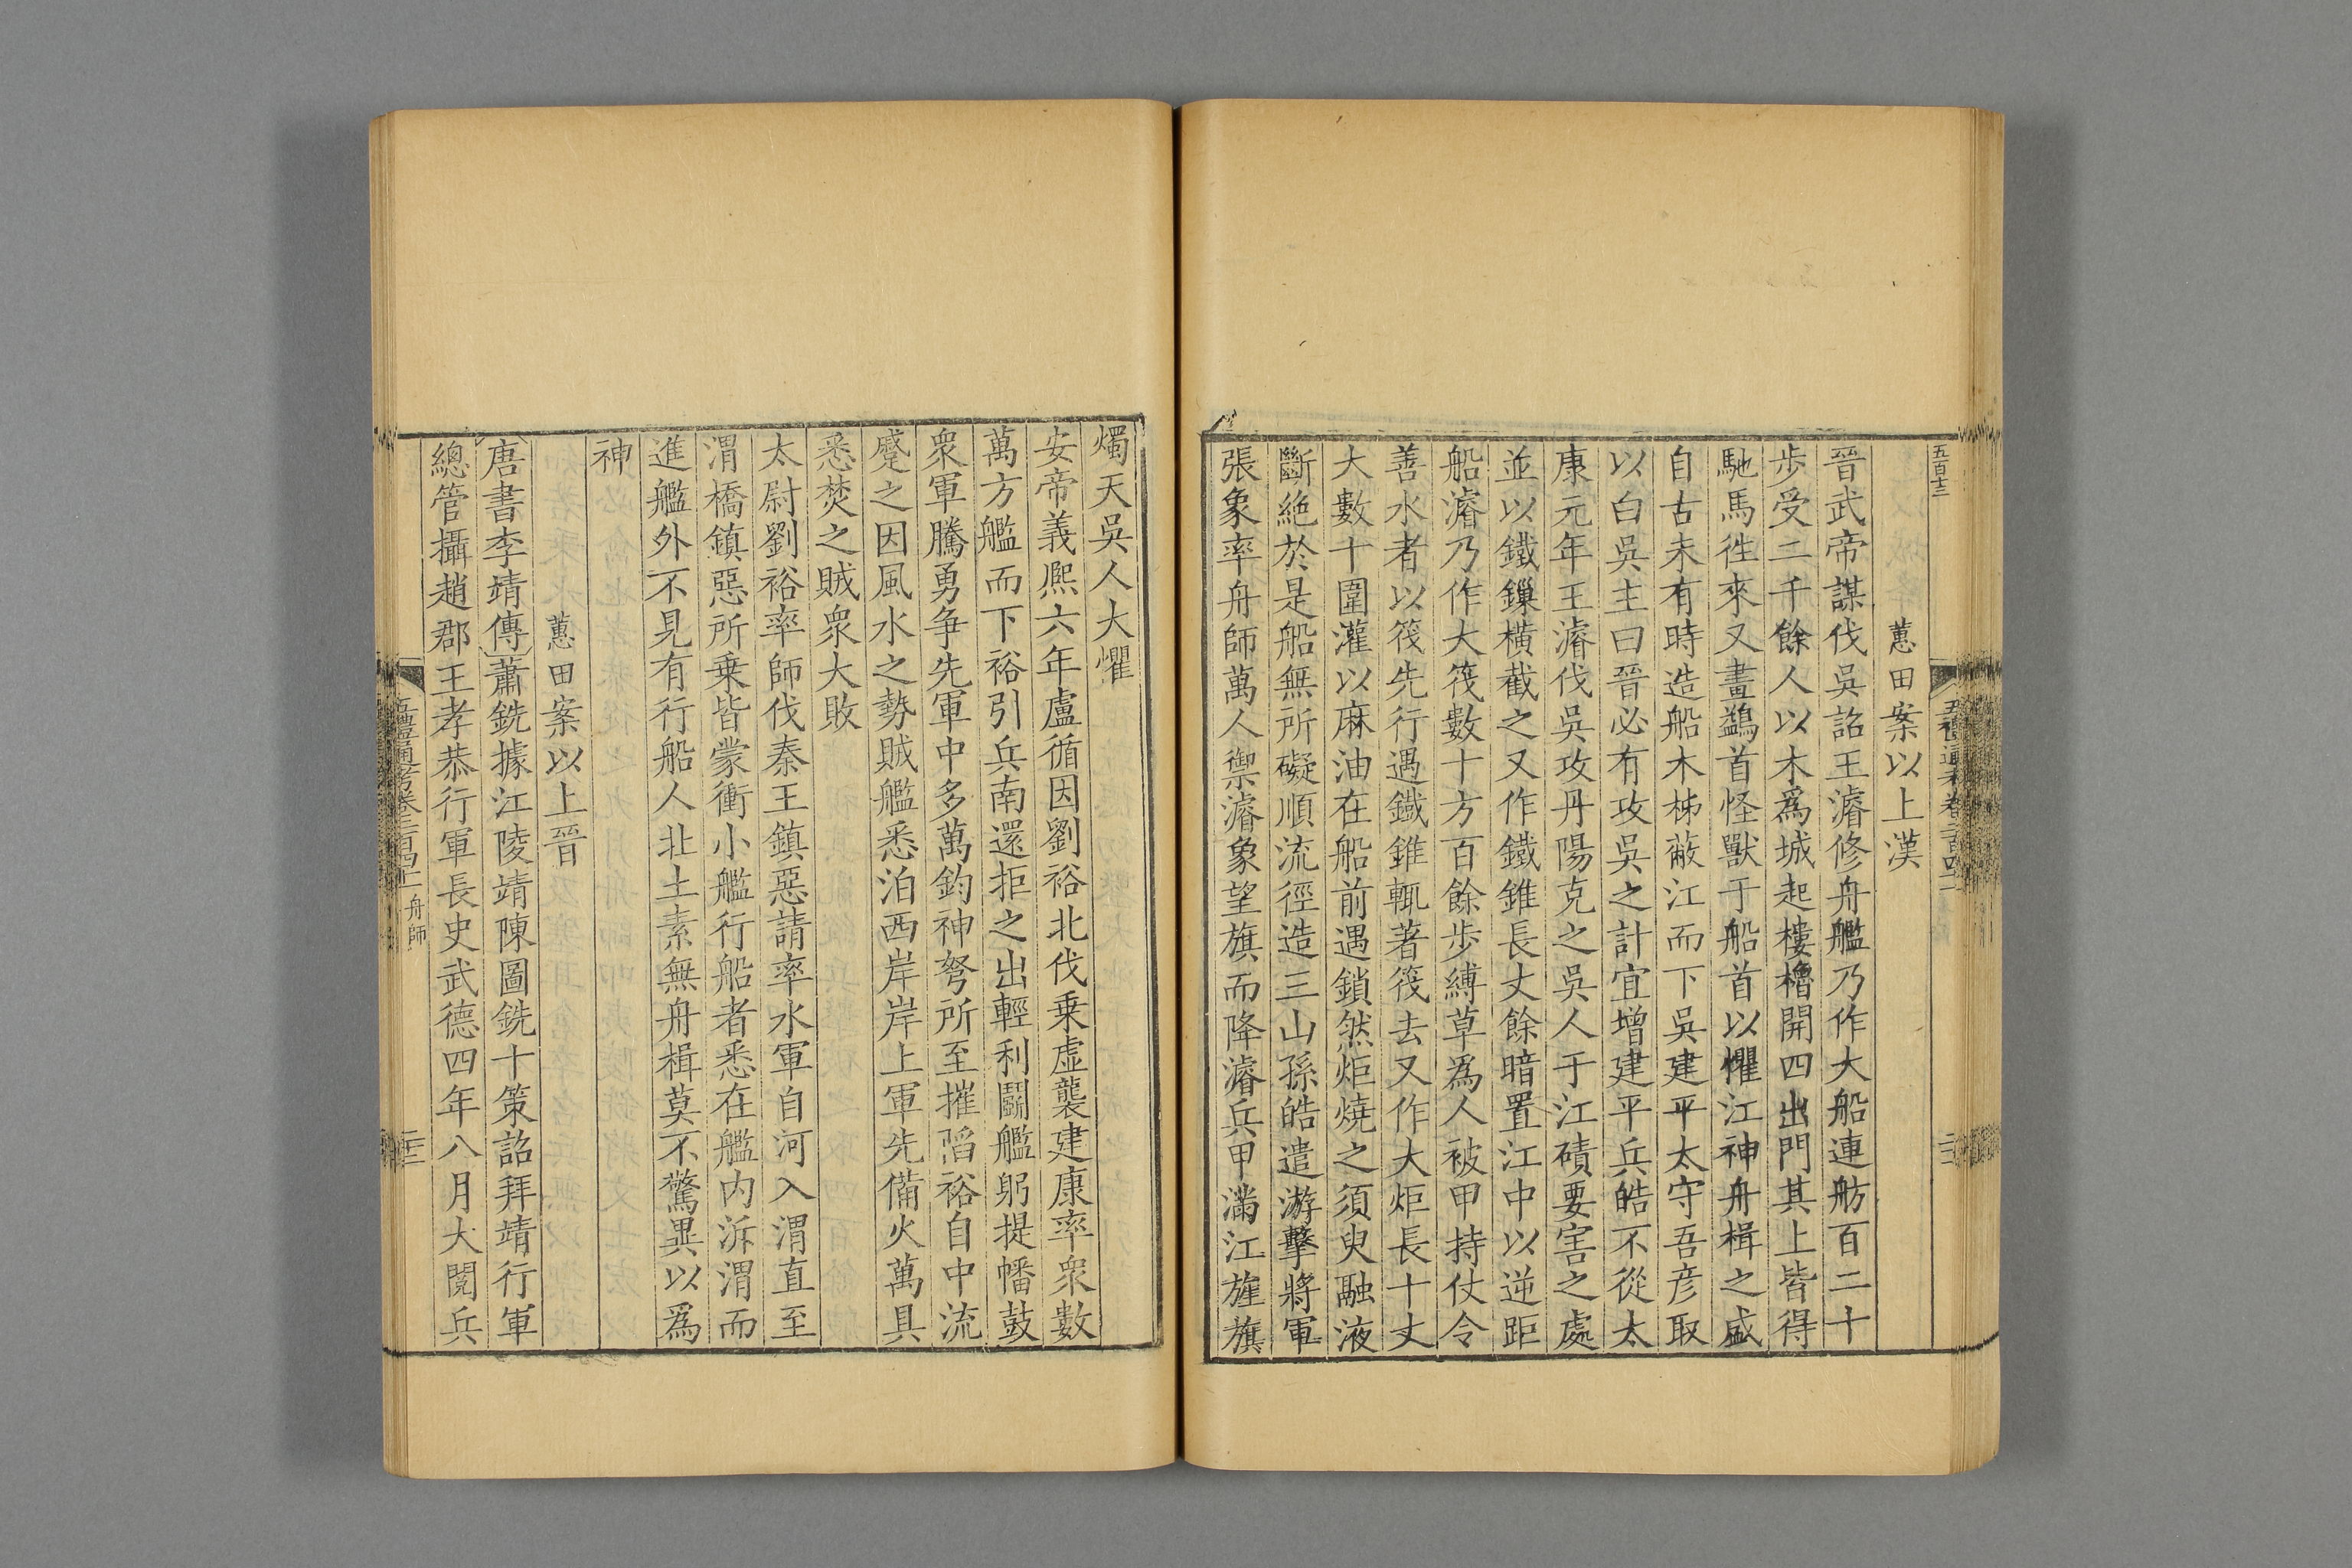 五百十三
蕙田案以上漢
晉武帝謀伐吳詔王濬修舟艦乃作大船連舫百二十
歩受二千餘人以木爲城起樓櫓開四出門其上皆得
馳馬徃來又畫鷁首怪獸于船首以懼江神舟楫之盛
自古未有時造船木柹蔽江而下吳建平太守吾彥取
以白吳主曰晉必有攻吳之計宜增建平兵皓不從太
康元年王濬伐吳攻丹陽克之吳人于江磧要害之處
並以鐵鏁橫截之又作鐵錐長丈餘暗置江中以逆距
船濬乃作大筏數十方百餘步縛草爲人被甲持仗令
善水者以筏先行遇鐵錐輒著筏去又作大炬長十丈
大數十圍灌以麻油在船前遇鎖然炬燒之須臾融液
斷絶於是船無所礙順流徑造三山孫皓遣游擊將軍
張象率舟師萬人禦濬象望旗而降濬兵甲滿江旌旗
燭天吳人大懼
安帝義熙六年盧循因劉裕北伐乗虛襲建康率衆數
萬方艦而下裕引兵南還拒之出輕利鬭艦躬提幡鼓
衆軍騰勇爭先軍中多萬鈞神弩所至摧陷裕自中流
蹙之因風水之勢賊艦悉泊西岸岸上軍先備火萬具
悉焚之賊衆大敗
太尉劉裕率師伐秦王鎮惡請率水軍自河入渭直至
渭橋鎮惡所乗皆蒙衝小艦行船者悉在艦内泝渭而
進艦外不見有行船人北土素無舟楫莫不驚異以爲
神
蕙田案以上晉
唐書李靖傳蕭銑據江陵靖陳圖銑十策詔拜靖行軍
總管攝趙郡王孝恭行軍長史武德四年八月大閱兵
五禮通考卷二百四十二舟師